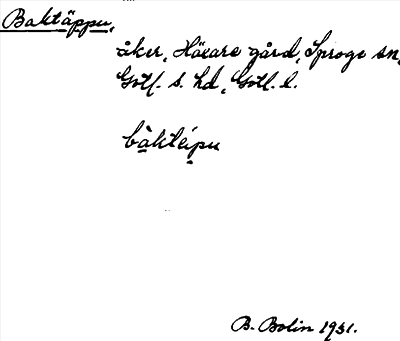 Baktäppu,
åker, Häxare gård, Sproge sn,
Gotl. s. hd, Gotl. l.
bàktéipu
B. Bolin 1931.